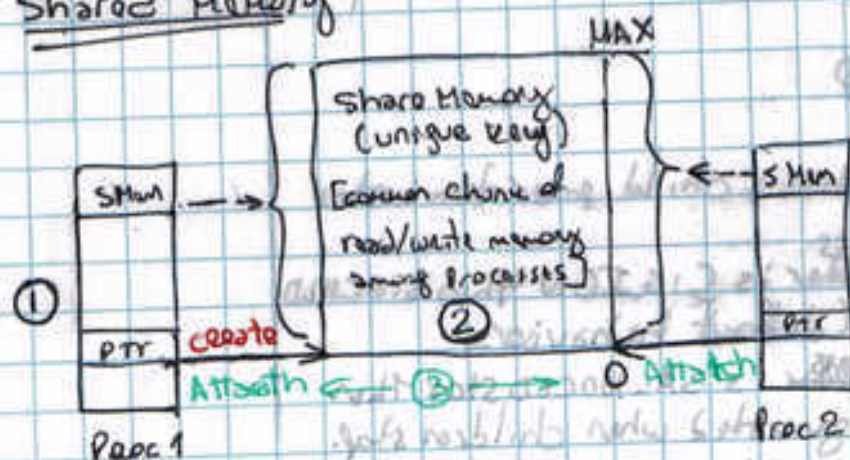 Shared Memory
MAX
Share Memory
(unique key)
[common chunk of
read/write memory
among processes]
SMem
S Mem
①
②
PTR
create
PTR
Attatch
③
0
Attatch
Proc 1
Proc 2